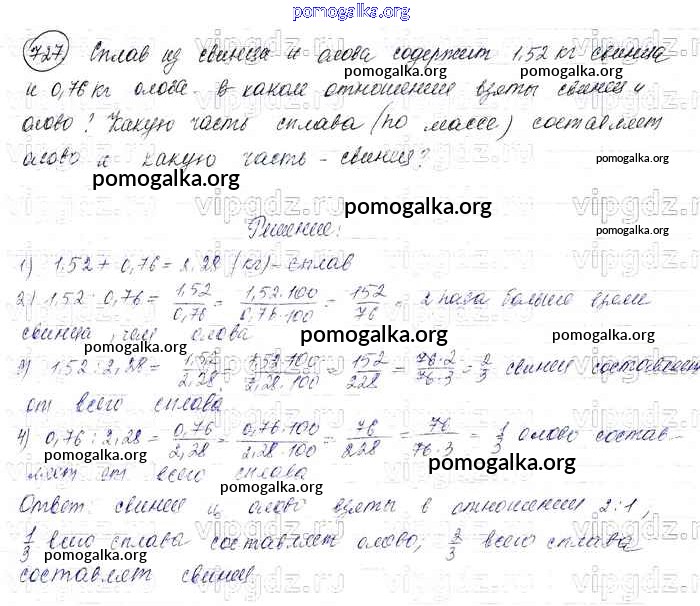 pomogalka.org
727) Сплав из свинца и олова содержит 1.52 кг свинца
pomogalka.org pomogalka.org
и 0,76 кг олова. в каком отношении взяты свинец и
олово? Какую часть сплава (по массе) составляет
pomogalka.org
олово и какую часть - свинец?
pomogalka.org
pomogalka.org
Решение:
1) 1.52 + 0,76 = 2,28 (кг) - сплав
pomogalka.org
2) 1.52 : 0,76 = 1.52/0,76 = 1,52·100/0,76·100 = 152/76 = 2 раза больше взяли
свинца, чем олова
pomogalka.org pomogalka.org pomogalka.org
3) 1.52 : 2,28 = 1,52/2,28 = 1,52·100/2,28·100 = 152/228 = 76·2/76·3 = 2/3 свинец составляет
от всего сплава
4) 0,76 : 2,28 = 0,76/2,28 = 0,76·100/2,28·100 = 76/228 = 76/76·3 = 1/3 олово состав-
pomogalka.org pomogalka.org
ляет от всего сплава
pomogalka.org
Ответ: свинец и олово взяты в отношении 2:1,
1/3 всего сплава составляет олово, 2/3 всего сплава
pomogalka.org pomogalka.org
составляет свинец